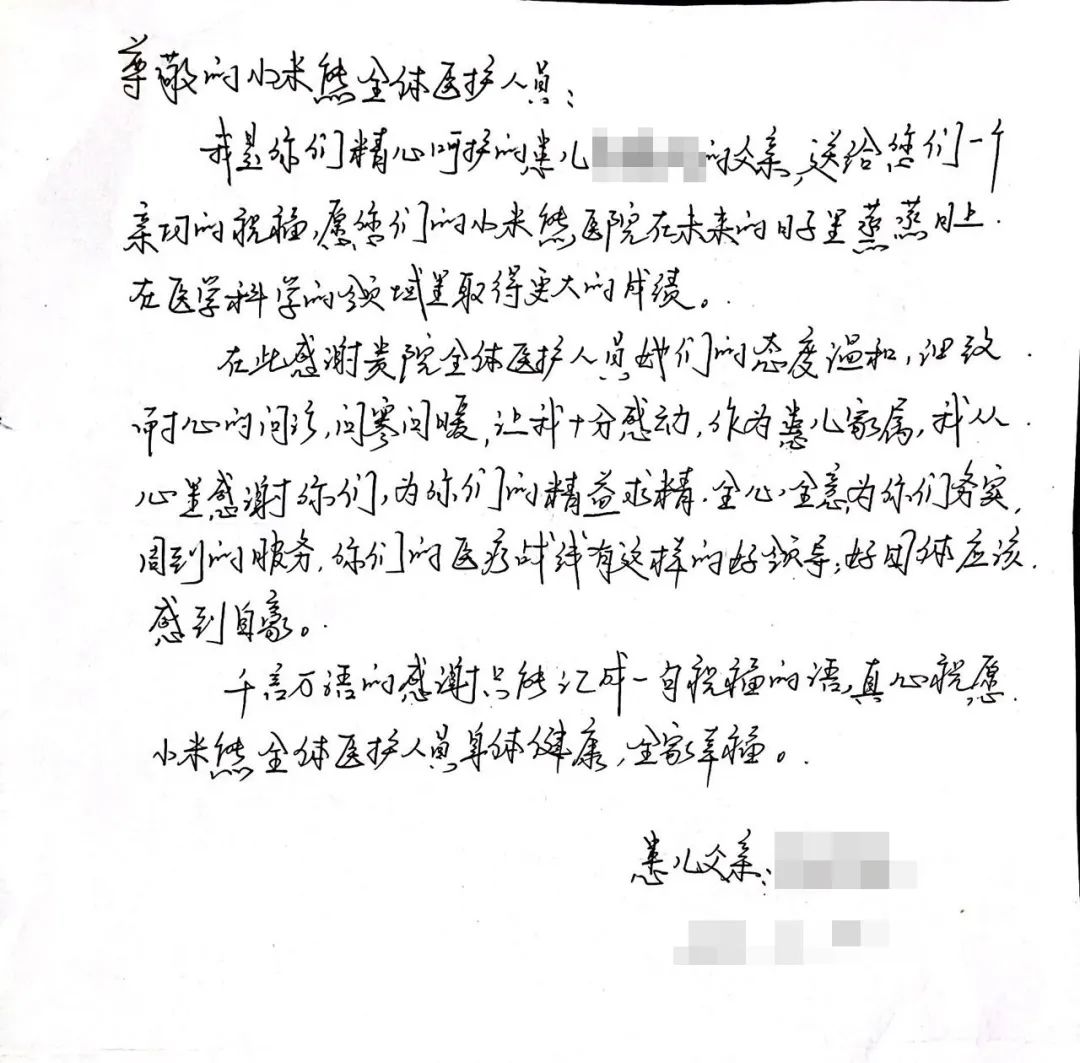 尊敬的小米熊全体医护人员：
我是你们精心呵护的患儿的父亲，送给您们一个
亲切的祝福，愿您们的小米熊医院在未来的日子里蒸蒸日上.
在医学科学的领域里取得更大的成绩。
在此感谢贵院全体医护人员她们的态度温和，细致
耐心的问诊，问寒问暖，让我十分感动，作为患儿家属，我从
心里感谢你们，为你们的精益求精.全心全意，为你们务实，
周到的服务，你们的医疗战线有这样的好领导，好团体应该
感到自豪。
千言万语的感谢只能汇成一句祝福的语，真心祝愿
小米熊全体医护人员身体健康，全家幸福。
患儿父亲：